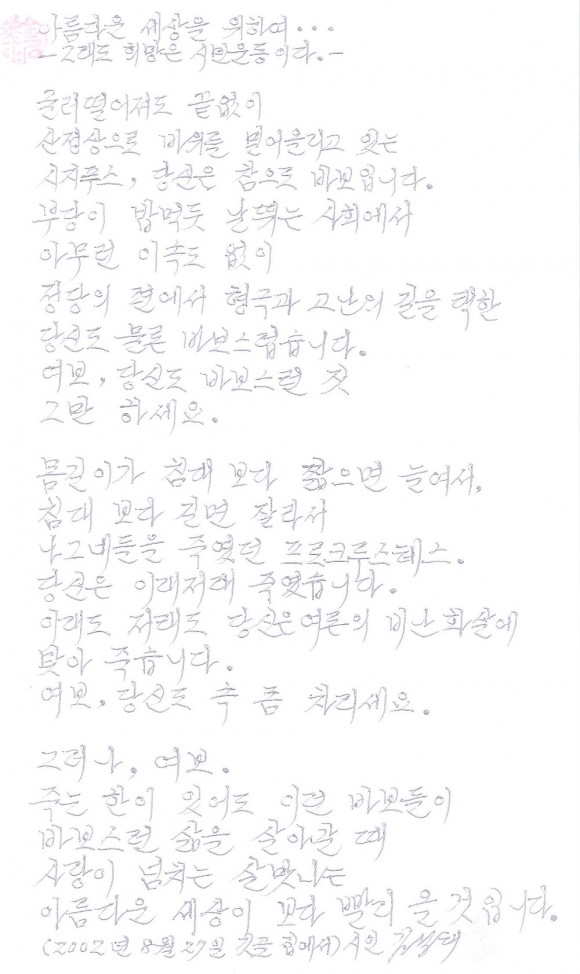 아름다운 세상을 위하여...
- 그래도 희망은 시민운동이다. -
굴러떨어져도 끝없이
산정상으로 바위를 밀어올리고 있는
시지푸스, 당신은 참으로 바보입니다.
부당이 밥먹듯 날뛰는 사회에서
아무런 이속도 없이
정당의 편에서 형극과 고난의 길을 택한
당신도 물론 바보스럽습니다.
여보, 당신도 바보스런 짓
그만 하세요.
몸길이가 침대 보다 짧으면 늘여서,
침대 보다 길면 잘라서
나그네들을 죽였던 프로크루스테스.
당신은 이래저래 죽였습니다.
이래도 저래도 당신은 여론의 비난 화살에
맞아 죽습니다.
여보, 당신도 속 좀 차리세요.
그러나, 여보.
죽는 한이 있어도 이런 바보들이
바보스런 삶을 살아갈 때
사랑이 넘치는 살맛나는
아름다운 세상이 보다 빨리 올 것입니다.
(2002년 8월 27일 집에서) 시인